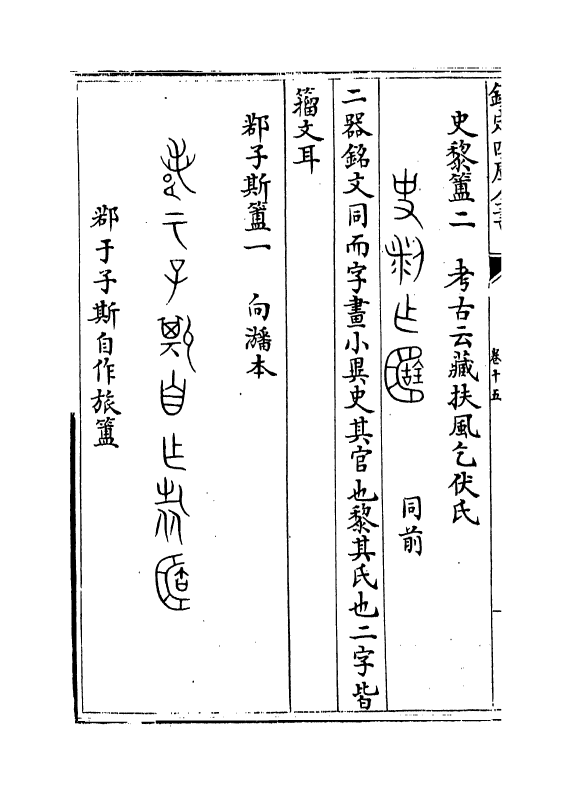 欽定四庫全書
卷十五
史黎簠二　考古云藏扶風乞伏氏
同前
二器銘文同而字畫小異史其官也黎其氏也二字皆
籀文耳
鄀子斯簠一　向𤅢本
鄀于子斯自作旅簠